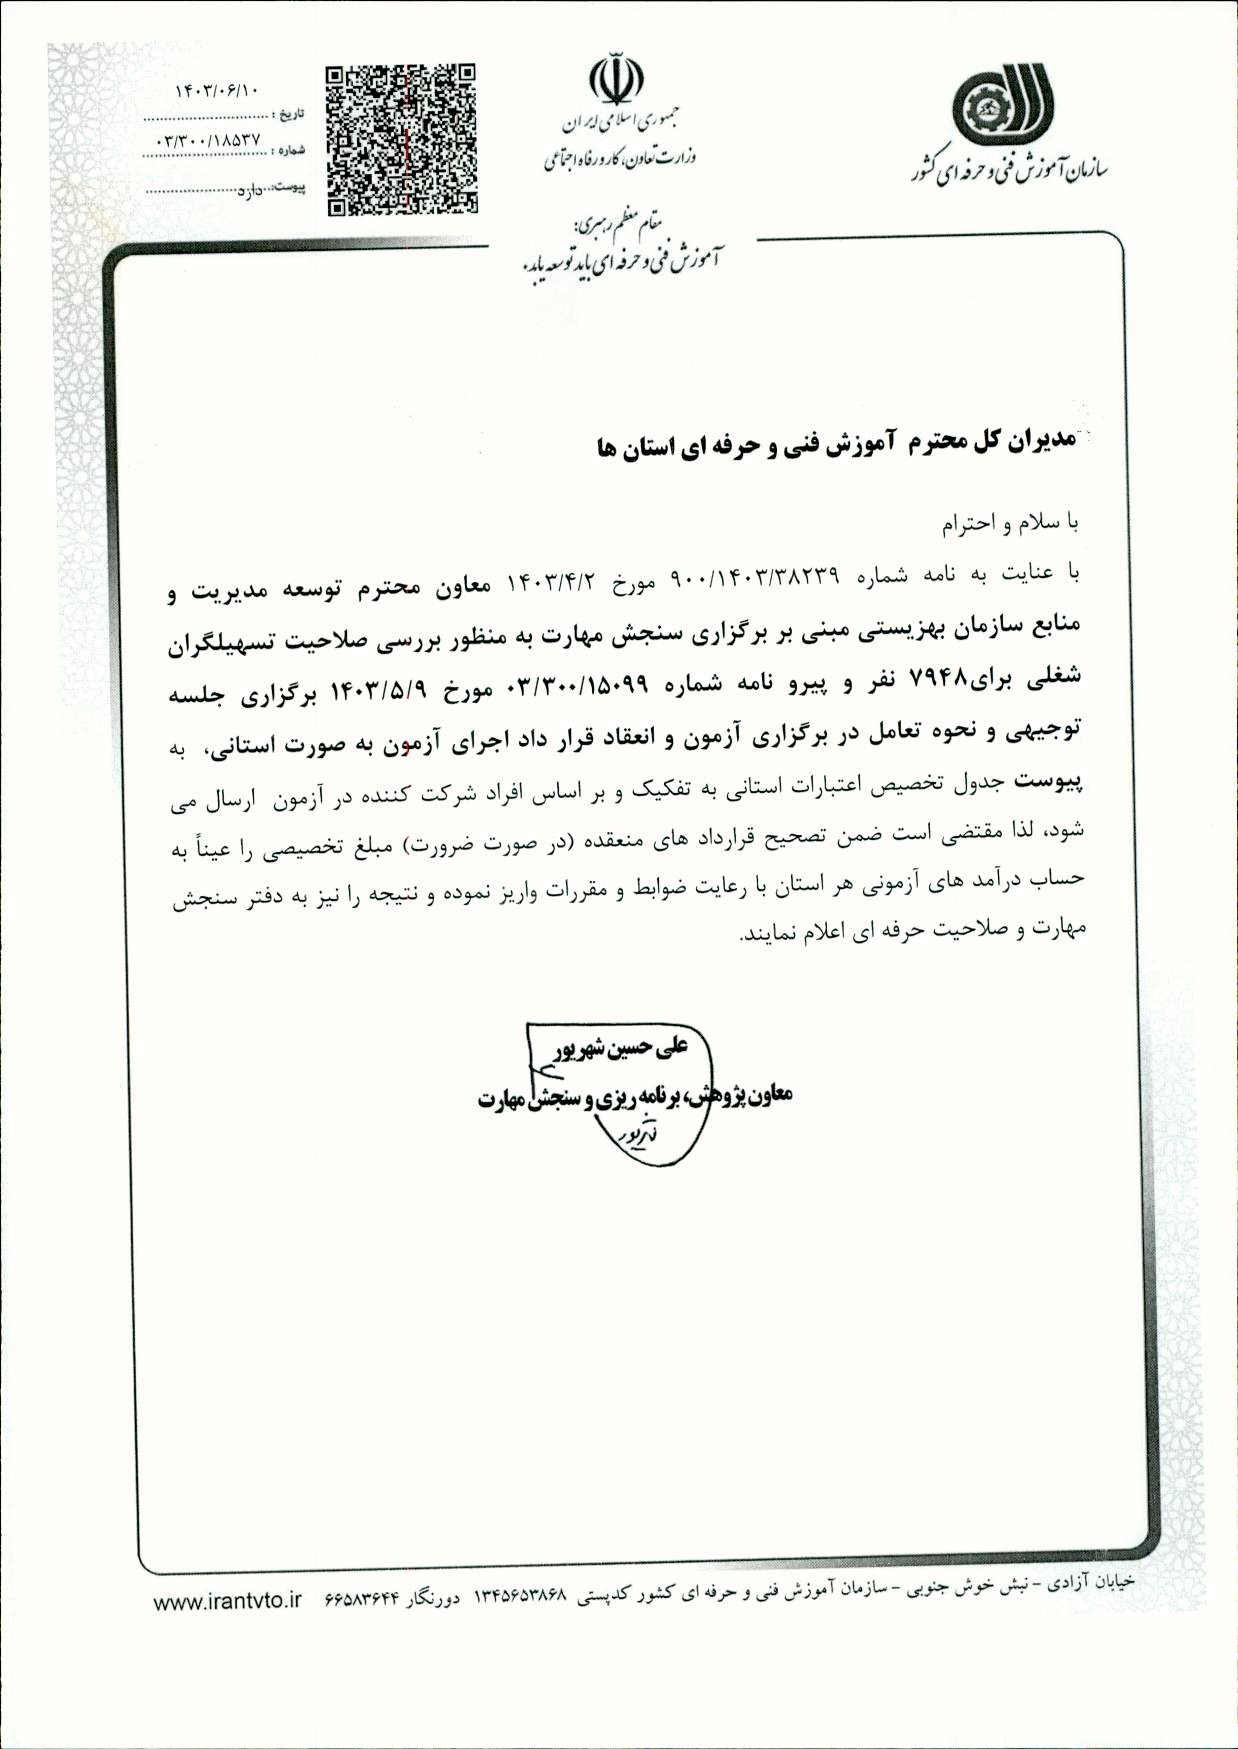 سازمان آموزش فنی و حرفه ای کشور
جمهوری اسلامی ایران
وزارت تعاون، کار و رفاه اجتماعی
مقام معظم رهبری:
آموزش فنی و حرفه ای باید توسعه یابد.
۱۴۰۳/۰۶/۱۰
تاریخ :
۰۳/۳۰۰/۱۸۵۳۷
شماره :
پیوست: دارد
مدیران کل محترم آموزش فنی و حرفه ای استان ها
با سلام و احترام
با عنایت به نامه شماره ۹۰۰/۱۴۰۳/۳۸۲۳۹ مورخ ۱۴۰۳/۴/۲ معاون محترم توسعه مدیریت و
منابع سازمان بهزیستی مبنی بر برگزاری سنجش مهارت به منظور بررسی صلاحیت تسهیلگران
شغلی برای۷۹۴۸ نفر و پیرو نامه شماره ۰۳/۳۰۰/۱۵۰۹۹ مورخ ۱۴۰۳/۵/۹ برگزاری جلسه
توجیهی و نحوه تعامل در برگزاری آزمون و انعقاد قرار داد اجرای آزمون به صورت استانی، به
پیوست جدول تخصیص اعتبارات استانی به تفکیک و بر اساس افراد شرکت کننده در آزمون ارسال می
شود، لذا مقتضی است ضمن تصحیح قرارداد های منعقده (در صورت ضرورت) مبلغ تخصیصی را عیناً به
حساب درآمد های آزمونی هر استان با رعایت ضوابط و مقررات واریز نموده و نتیجه را نیز به دفتر سنجش
مهارت و صلاحیت حرفه ای اعلام نمایند.
علی حسین شهریور
معاون پژوهش، برنامه ریزی و سنجش مهارت
خیابان آزادی - نبش خوش جنوبی - سازمان آموزش فنی و حرفه ای کشور کدپستی ۱۳۴۵۶۵۳۸۶۸ دورنگار ۶۶۵۸۳۶۴۴ www.irantvto.ir